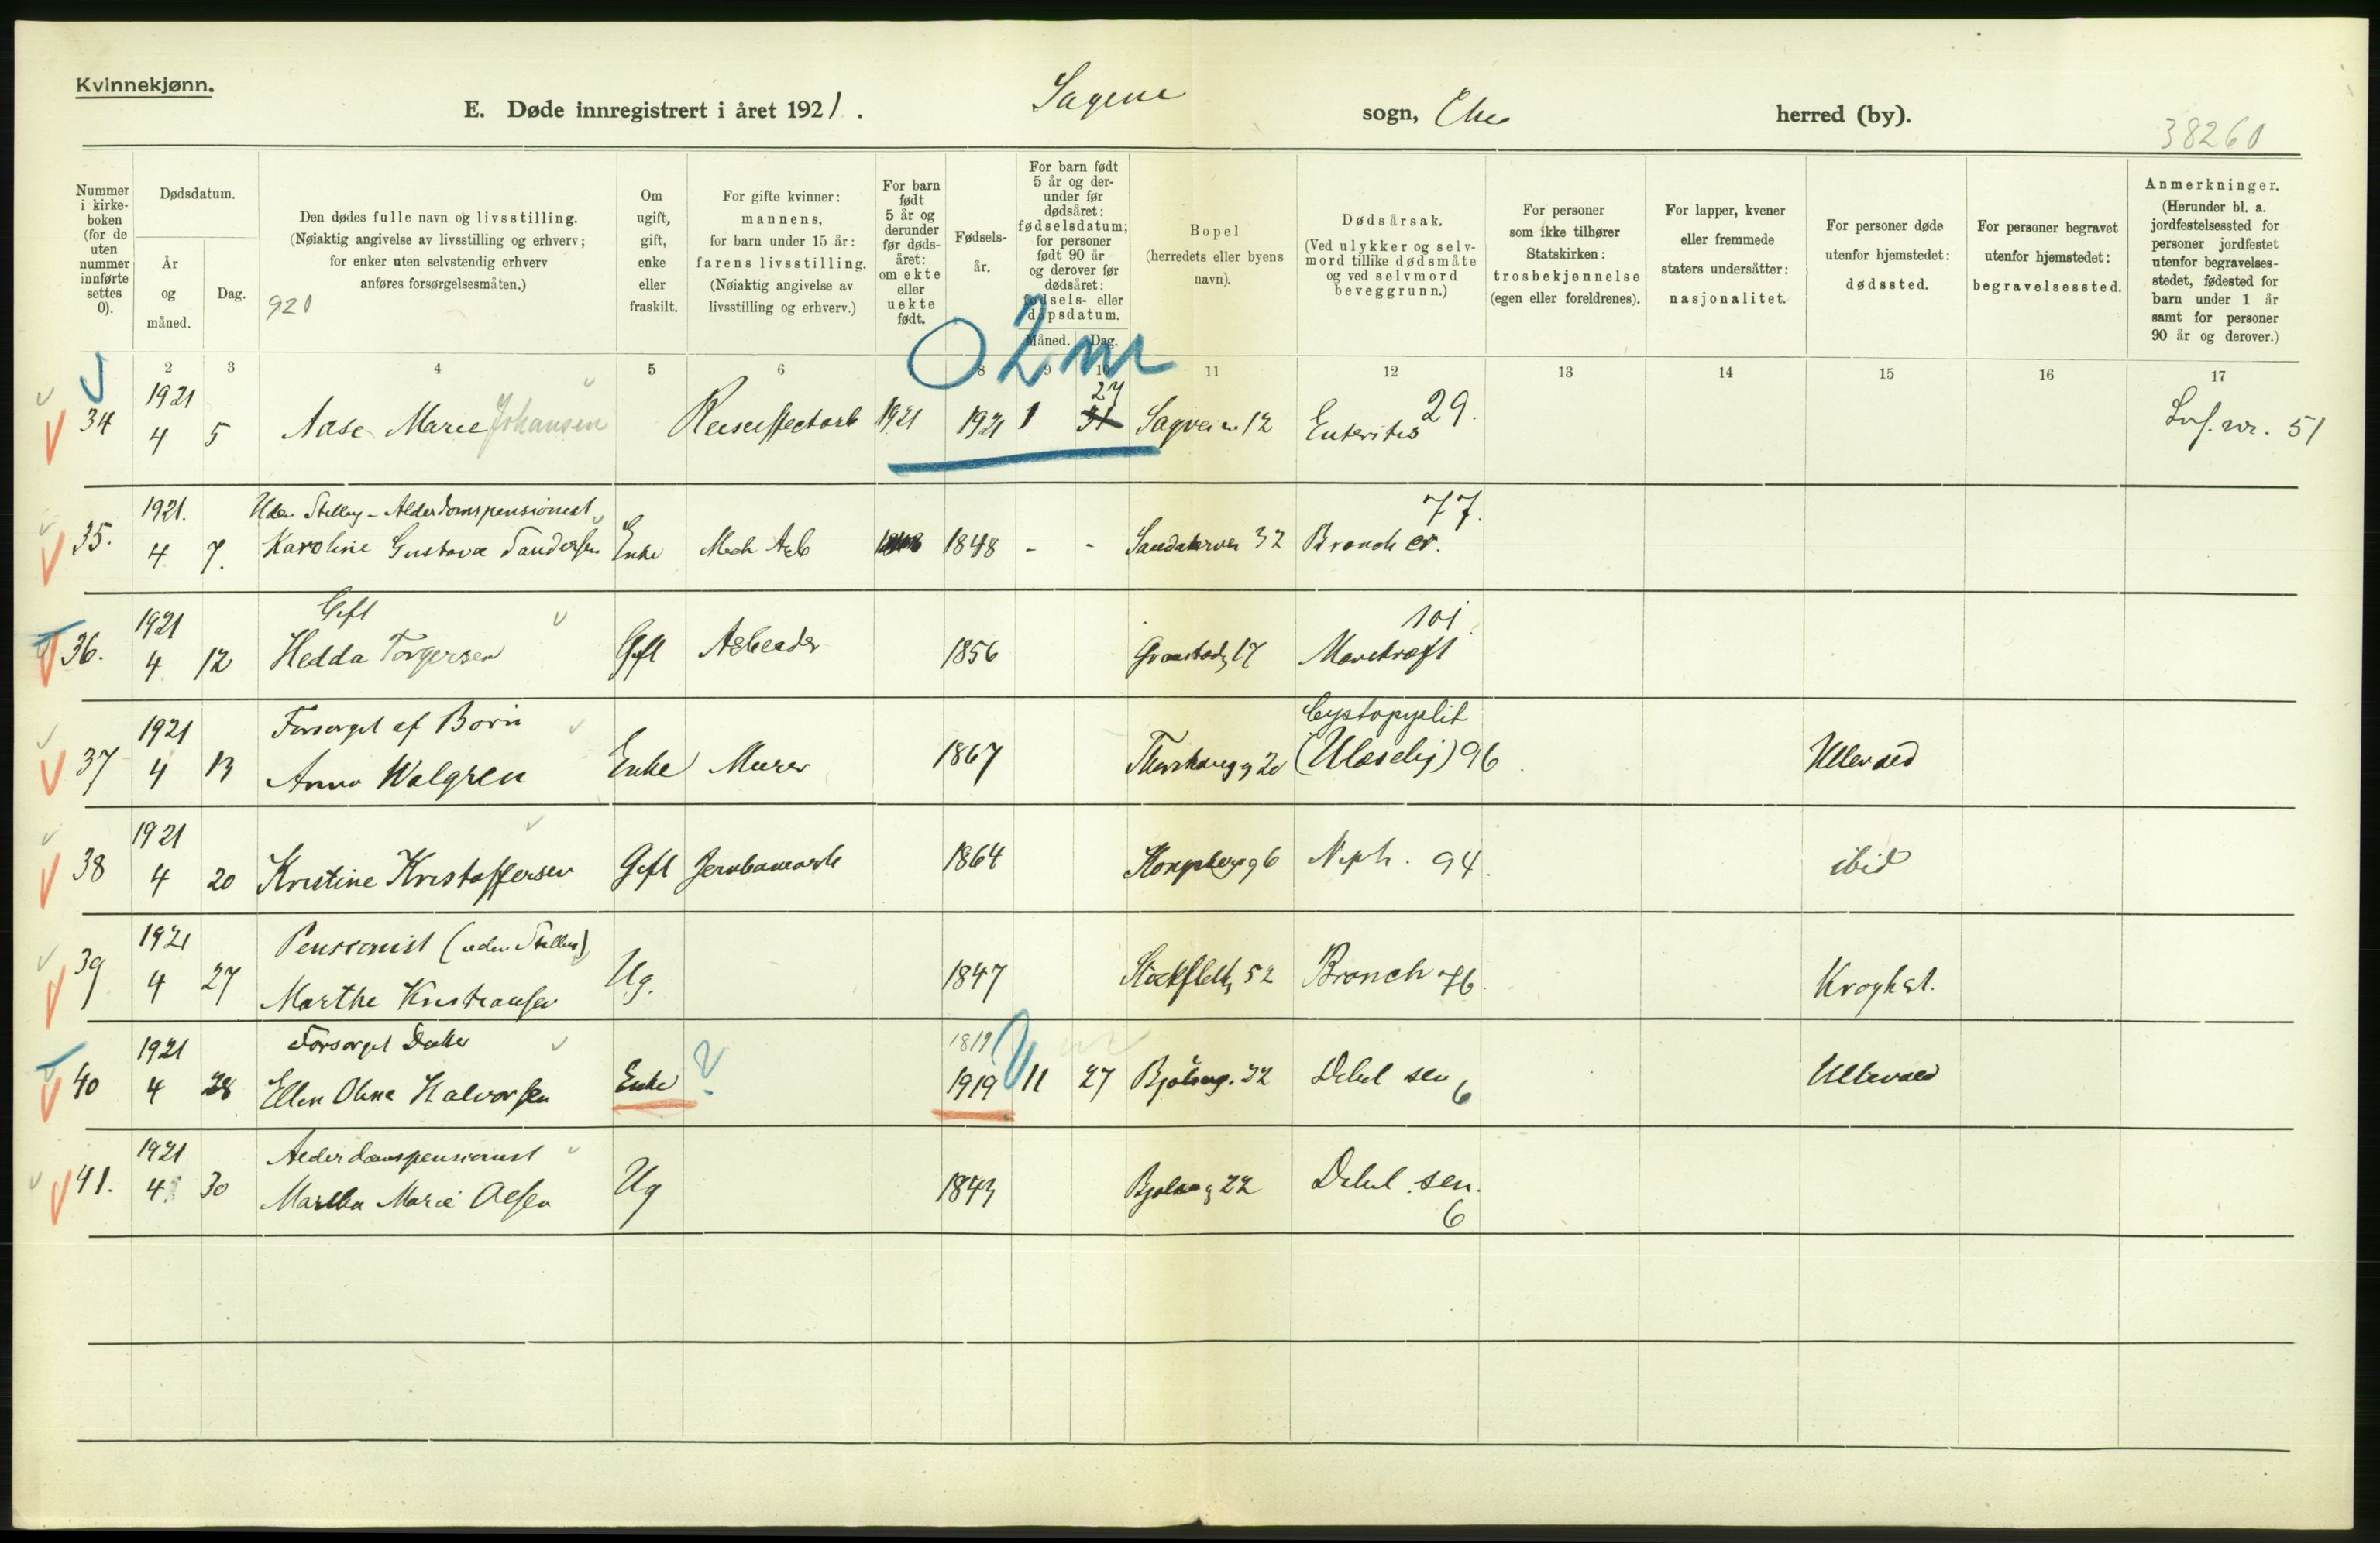 Kvinnekjønn.
E. Døde innregistrert i året 1921. Sagene sogn, Chr herred (by).
38260
Nummer i kirkeboken (for de uten nummer innførte settes 0).
Dødsdatum.
År og måned.
Dag.
Den dødes fulle navn og livsstilling.
(Nøiaktig angivelse av livsstilling og erhverv;
for enker uten selvstendig erhverv
anføres forsørgelsesmåten.)
920
Om ugift, gift, enke eller fraskilt.
For gifte kvinner: mannens, for barn under 15 år: farens livsstilling. (Nøiaktig angivelse av livsstilling og erhverv.)
For barn født 5 år og derunder før dødsåret: om ekte eller uekte født.
Fødselsår.
For barn født 5 år og derunder før dødsåret: fødselsdatum; for personer født 90 år og derover før dødsåret: fødsels- eller dåpsdatum.
Måned. Dag.
Bopel (herredets eller byens navn).
Dødsårsak. (Ved ulykker og selvmord tillike dødsmåte og ved selvmord beveggrunn.)
For personer som ikke tilhører Statskirken: trosbekjennelse (egen eller foreldrenes).
For lapper, kvener eller fremmede staters undersåtter: nasjonalitet.
For personer døde utenfor hjemstedet: dødssted.
For personer begravet utenfor hjemstedet: begravelsessted.
Anmerkninger. (Herunder bl. a. jordfestelsessted for personer jordfestet utenfor begravelsesstedet, fødested for barn under 1 år samt for personer 90 år og derover.)
0 2 m
2 3 4 5 6 8 9 10 11 12 13 14 15 16 17
34 1921 4 5 Aase Marie Johansen 1921 1921 1 27 31 Sagveien 12 Enterites 29. nr. 51
Uden Stilling - Alderdomspensionist
35. 1921. 4 7. Karoline Gustava Sandersen Enke Mek Arb 1848 - - 32 Bronch cr. 77.
Gift
36. 1921 4 12 Hedda Torgersen Gift Arbeider 1856 17 Mavekræft 101.
Forsørget af Børn
37 1921 4 13 Anna Walgren Enke Murer 1867 Thorshaugg 20 Cystopyelit (Ulæselig) 96 Ullevaal
38 1921 4 20 Kristine Kristoffersen Gift Jernbanearb 1864 Kongsbergg 6 Neph. 94. ibid
Pensionist (uden Stilling)
39 1921 4 27 Marthe Kristiansen Ug. 1847 Stockfleths 52 Bronch 76. Kroghst.
Forsørget Datter
1819
40 1921 4 28 Ellen Oline Halvorsen Enke ? 1919 11 27 Bjølseng. 22 Debil sen 6 Ullevaal
Alderdomspensionist
41. 1921 4 30 Martha Marie Olsen Ug 1843 Bjølseng 22 Debil. sen. 6